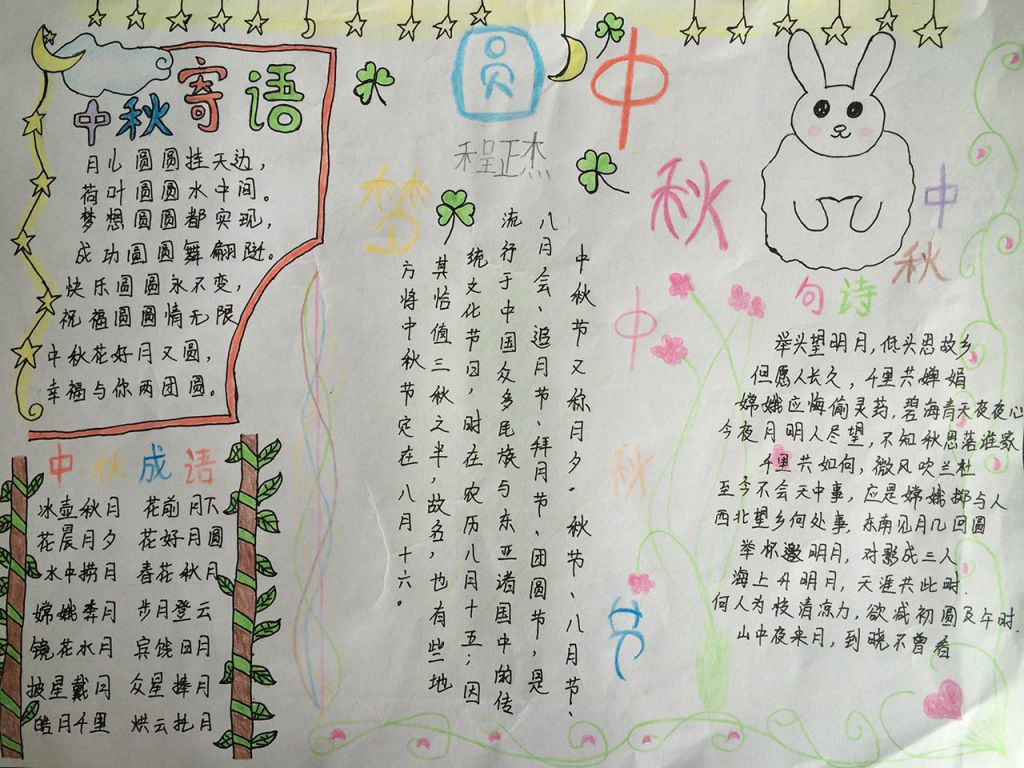 中秋寄语
月儿圆圆挂天边，
荷叶圆圆水中间。
梦想圆圆都实现，
成功圆圆舞翩跹。
快乐圆圆永不变，
祝福圆圆情无限
中秋花好月又圆，
幸福与你两团圆。
中秋成语
冰壶秋月 花前月下
花晨月夕 花好月圆
水中捞月 春花秋月
嫦娥奔月 步月登云
镜花水月 宾饯日月
披星戴月 众星捧月
皓月千里 烘云托月
梦圆中秋
程正杰
中秋节
中秋节又称月夕、秋节、八月节、
八月会、追月节、拜月节、团圆节，是
流行于中国众多民族与东亚诸国中的传
统文化节日，时在农历八月十五；因
其恰值三秋之半，故名，也有些地
方将中秋节定在八月十六。
中秋
句诗
举头望明月，低头思故乡
但愿人长久，千里共婵娟
嫦娥应悔偷灵药，碧海青天夜夜心
今夜月明人尽望，不知秋思落谁家
千里共如何，微风吹兰杜
至今不会天中事，应是嫦娥掷与人
西北望乡何处事，东南见月几回圆
举杯邀明月，对影成三人
海上升明月，天涯共此时.
何人为校清凉力，欲减初圆及午时.
山中夜来月，到晓不曾看